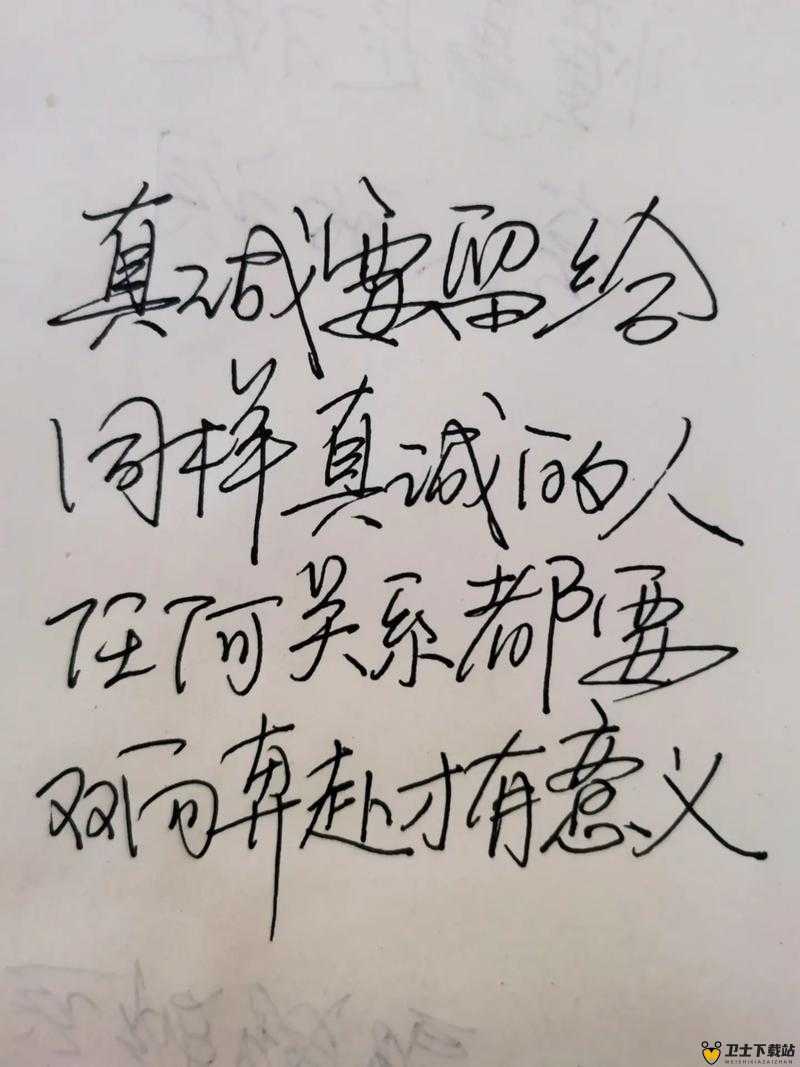 真诚要留给
同样真诚的人
任何关系都要
双向奔赴才有意义
卫士下载站
WEISHIXIAZAIZHAN